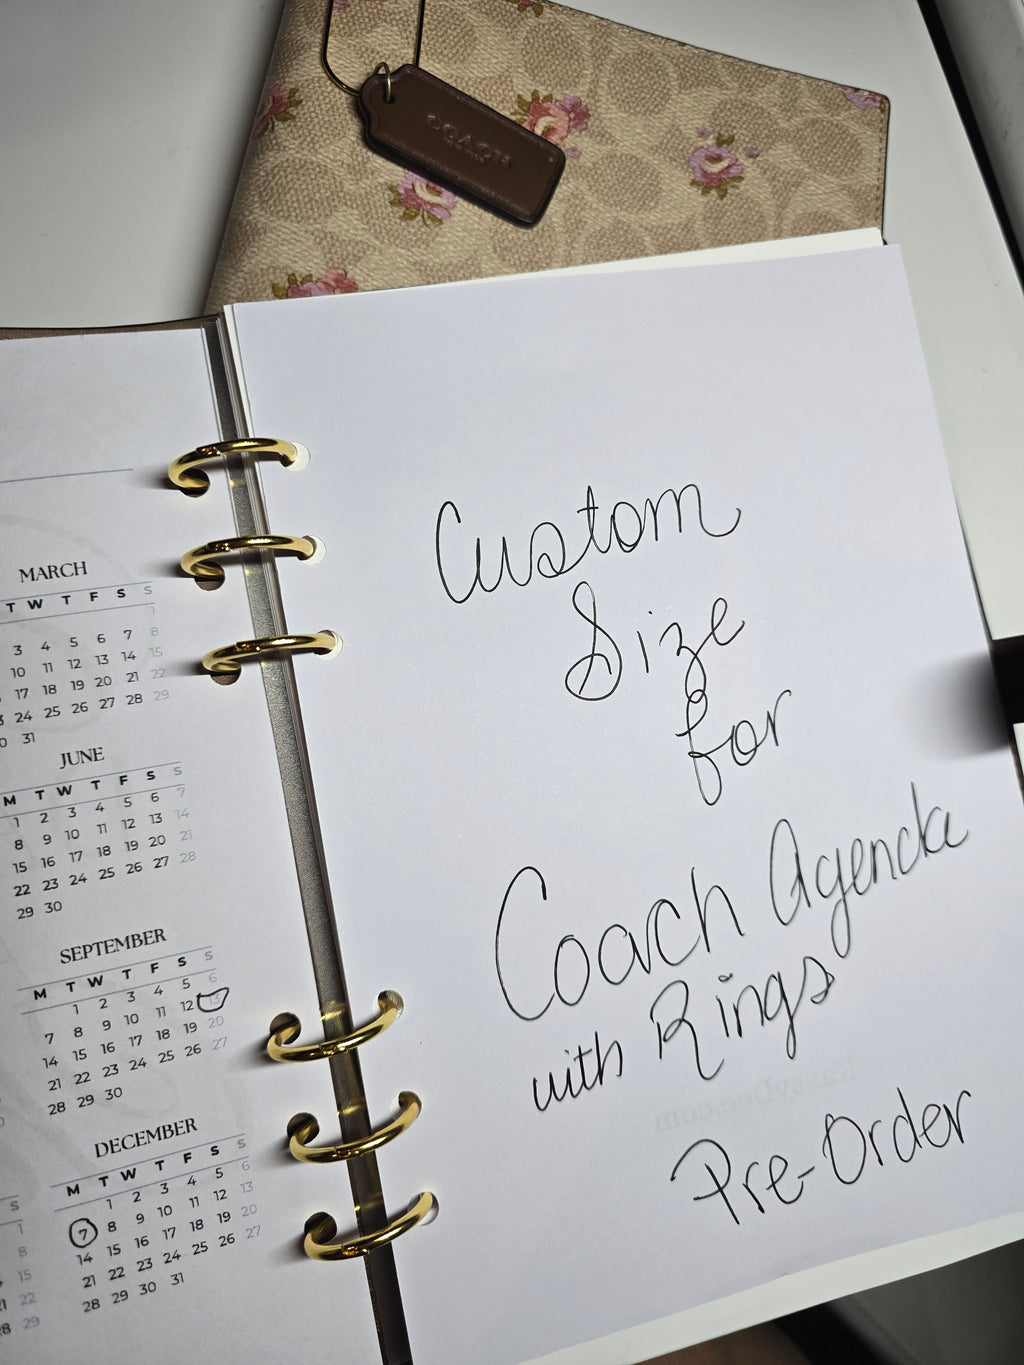 COACH
MARCH
T W T F S S
1
3 4 5 6 7 8
10 11 12 13 14 15
17 18 19 20 21 22
24 25 26 27 28 29
31
JUNE
M T W T F S S
1 2 3 4 5 6 7
8 9 10 11 12 13 14
15 16 17 18 19 20 21
22 23 24 25 26 27 28
29 30
SEPTEMBER
M T W T F S S
1 2 3 4 5 6
7 8 9 10 11 12 13
14 15 16 17 18 19 20
21 22 23 24 25 26 27
28 29 30
S
1
8
15
22
29
DECEMBER
M T W T F S S
1 2 3 4 5 6
7 8 9 10 11 12 13
14 15 16 17 18 19 20
21 22 23 24 25 26 27
28 29 30 31
Custom
Size
for
Coach Agenda
with Rings
Pre-Order
KassyDee.com